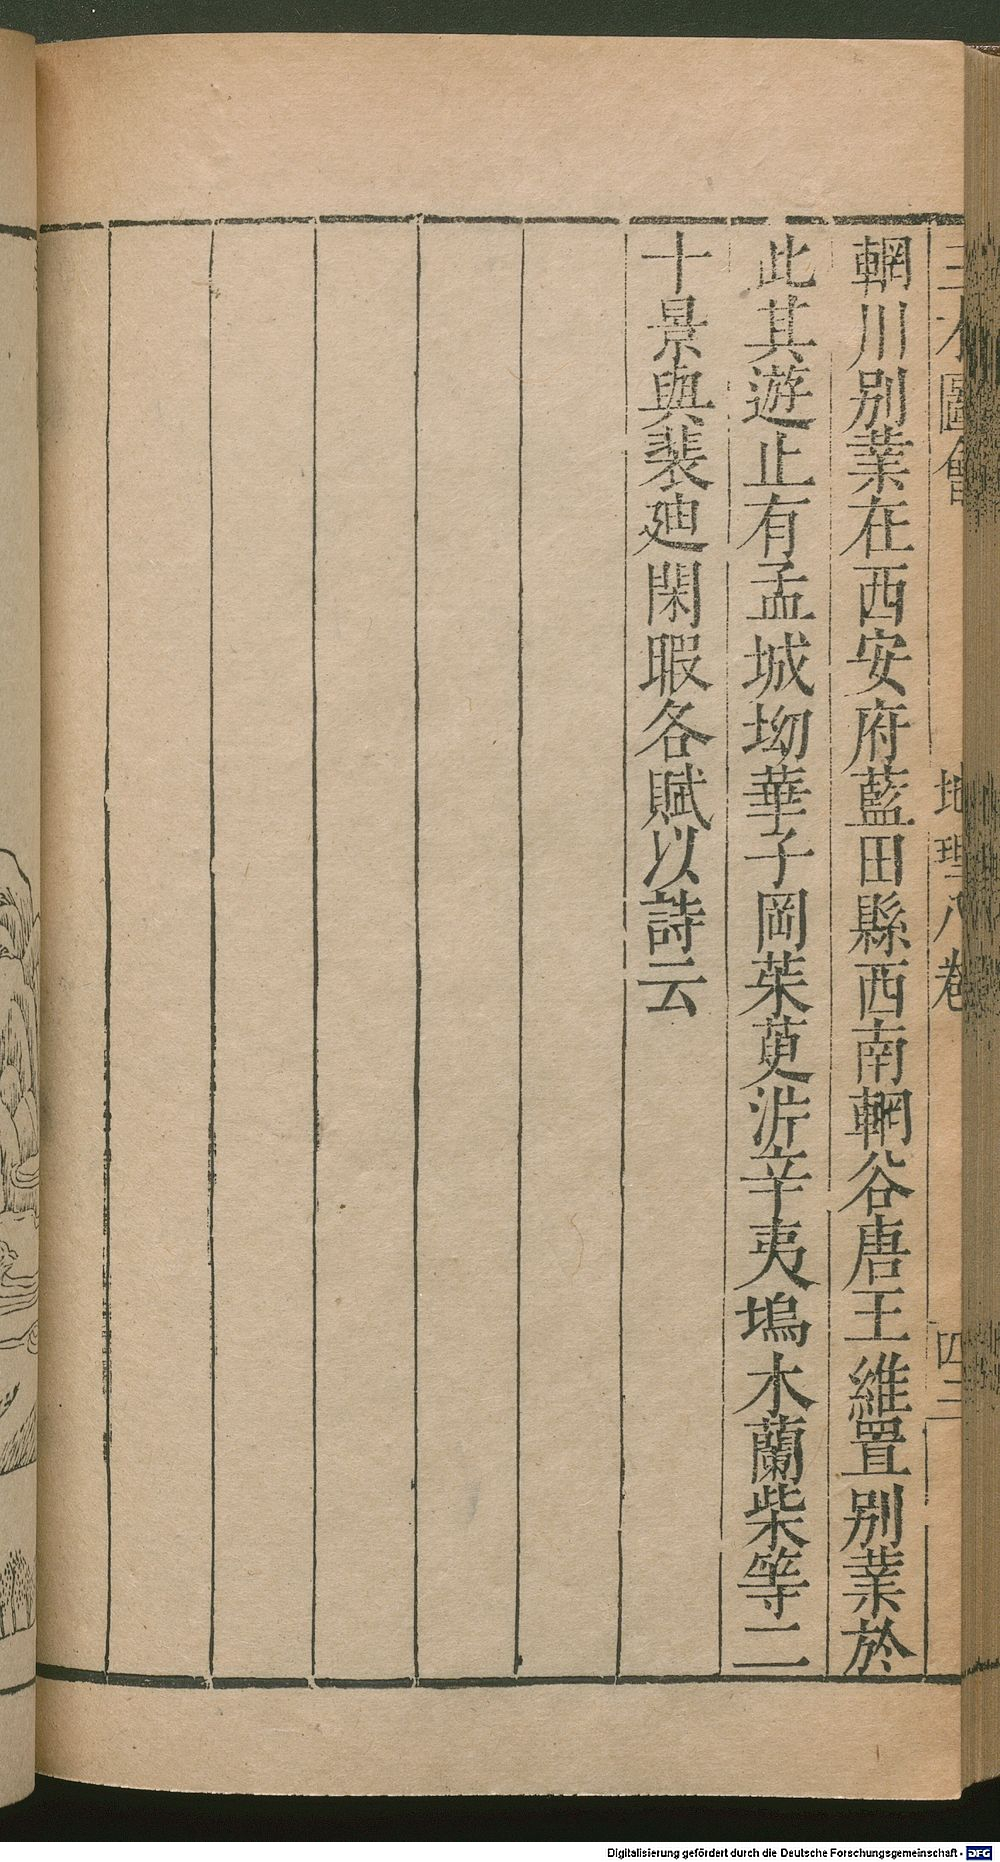 三才圖會 地理八卷 四二
輞川別業在西安府藍田縣西南輞谷唐王維置別業於
此其遊止有孟城坳華子岡茱萸沜辛夷塢木蘭柴等二
十景與裴廸閑暇各賦以詩云
Digitalisierung gefördert durch die Deutsche Forschungsgemeinschaft - DFG